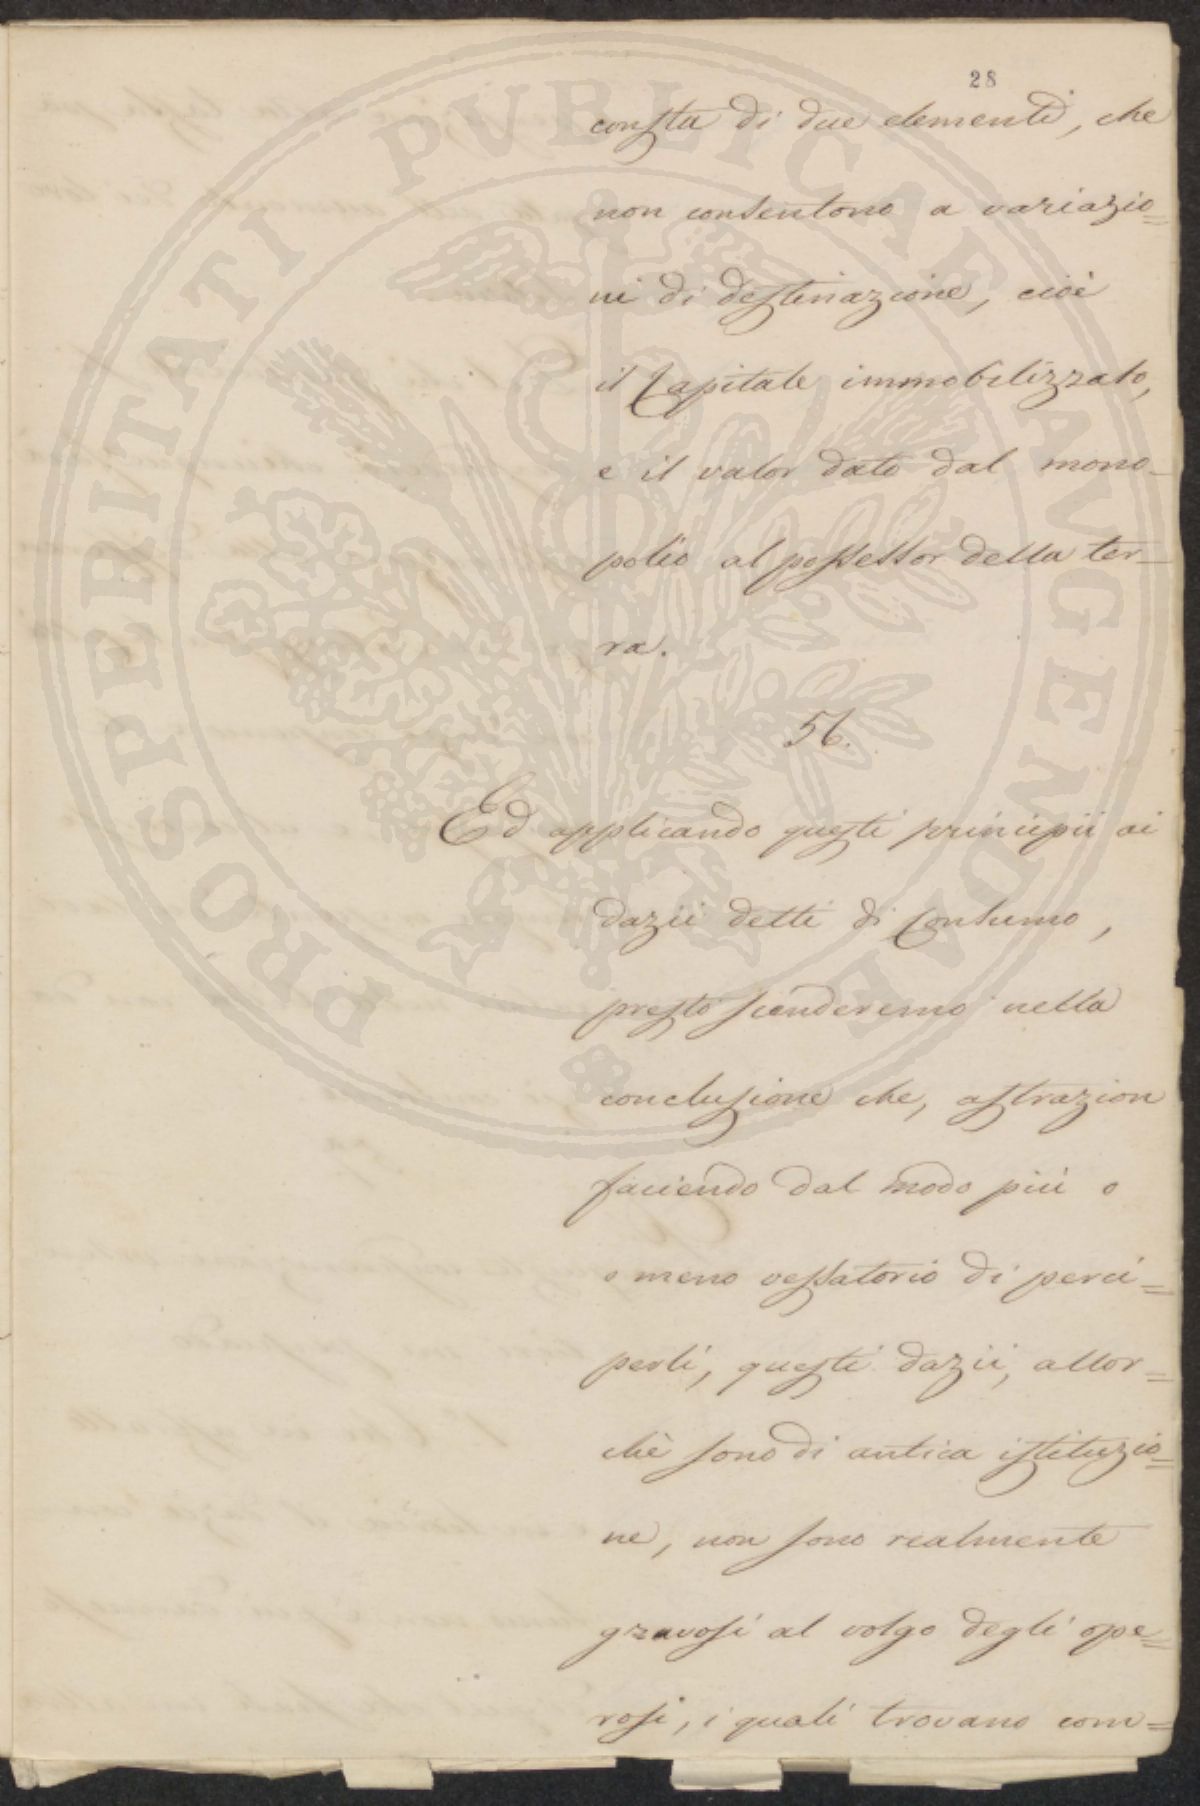 28
consta di due elementi, che
non consentono a variazio=
ni di destinazione, cioè
il Capitale immobilizzato,
e il valor dato dal mono-
polio al possessor della ter-
ra.
56.
Ed applicando questi principii ai
dazii detti di Consumo,
presto scenderemo nella
conclusione che, astrazion
faciendo dal modo più o
o meno vessatorio di perci=
perli, questi dazii, allor=
chè sono di antica istituzio=
ne, non sono realmente
gravosi al volgo degli ope=
rosi, i quali trovano com=
PROSPERITATI PVBLICAE AVGENDAE